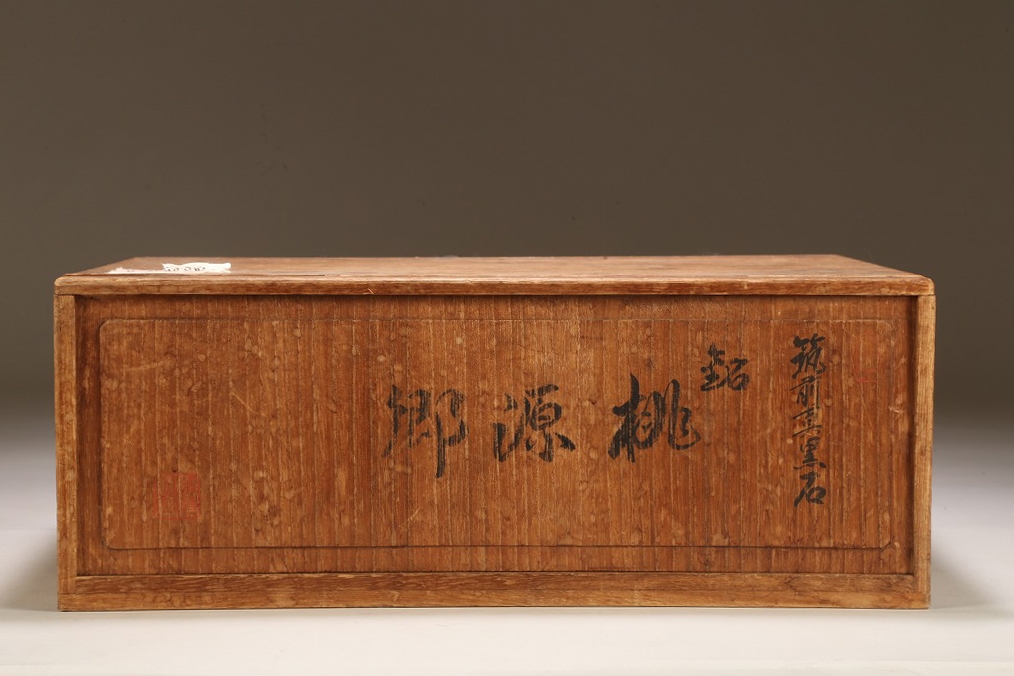 筑前真黒石
銘
桃源郷